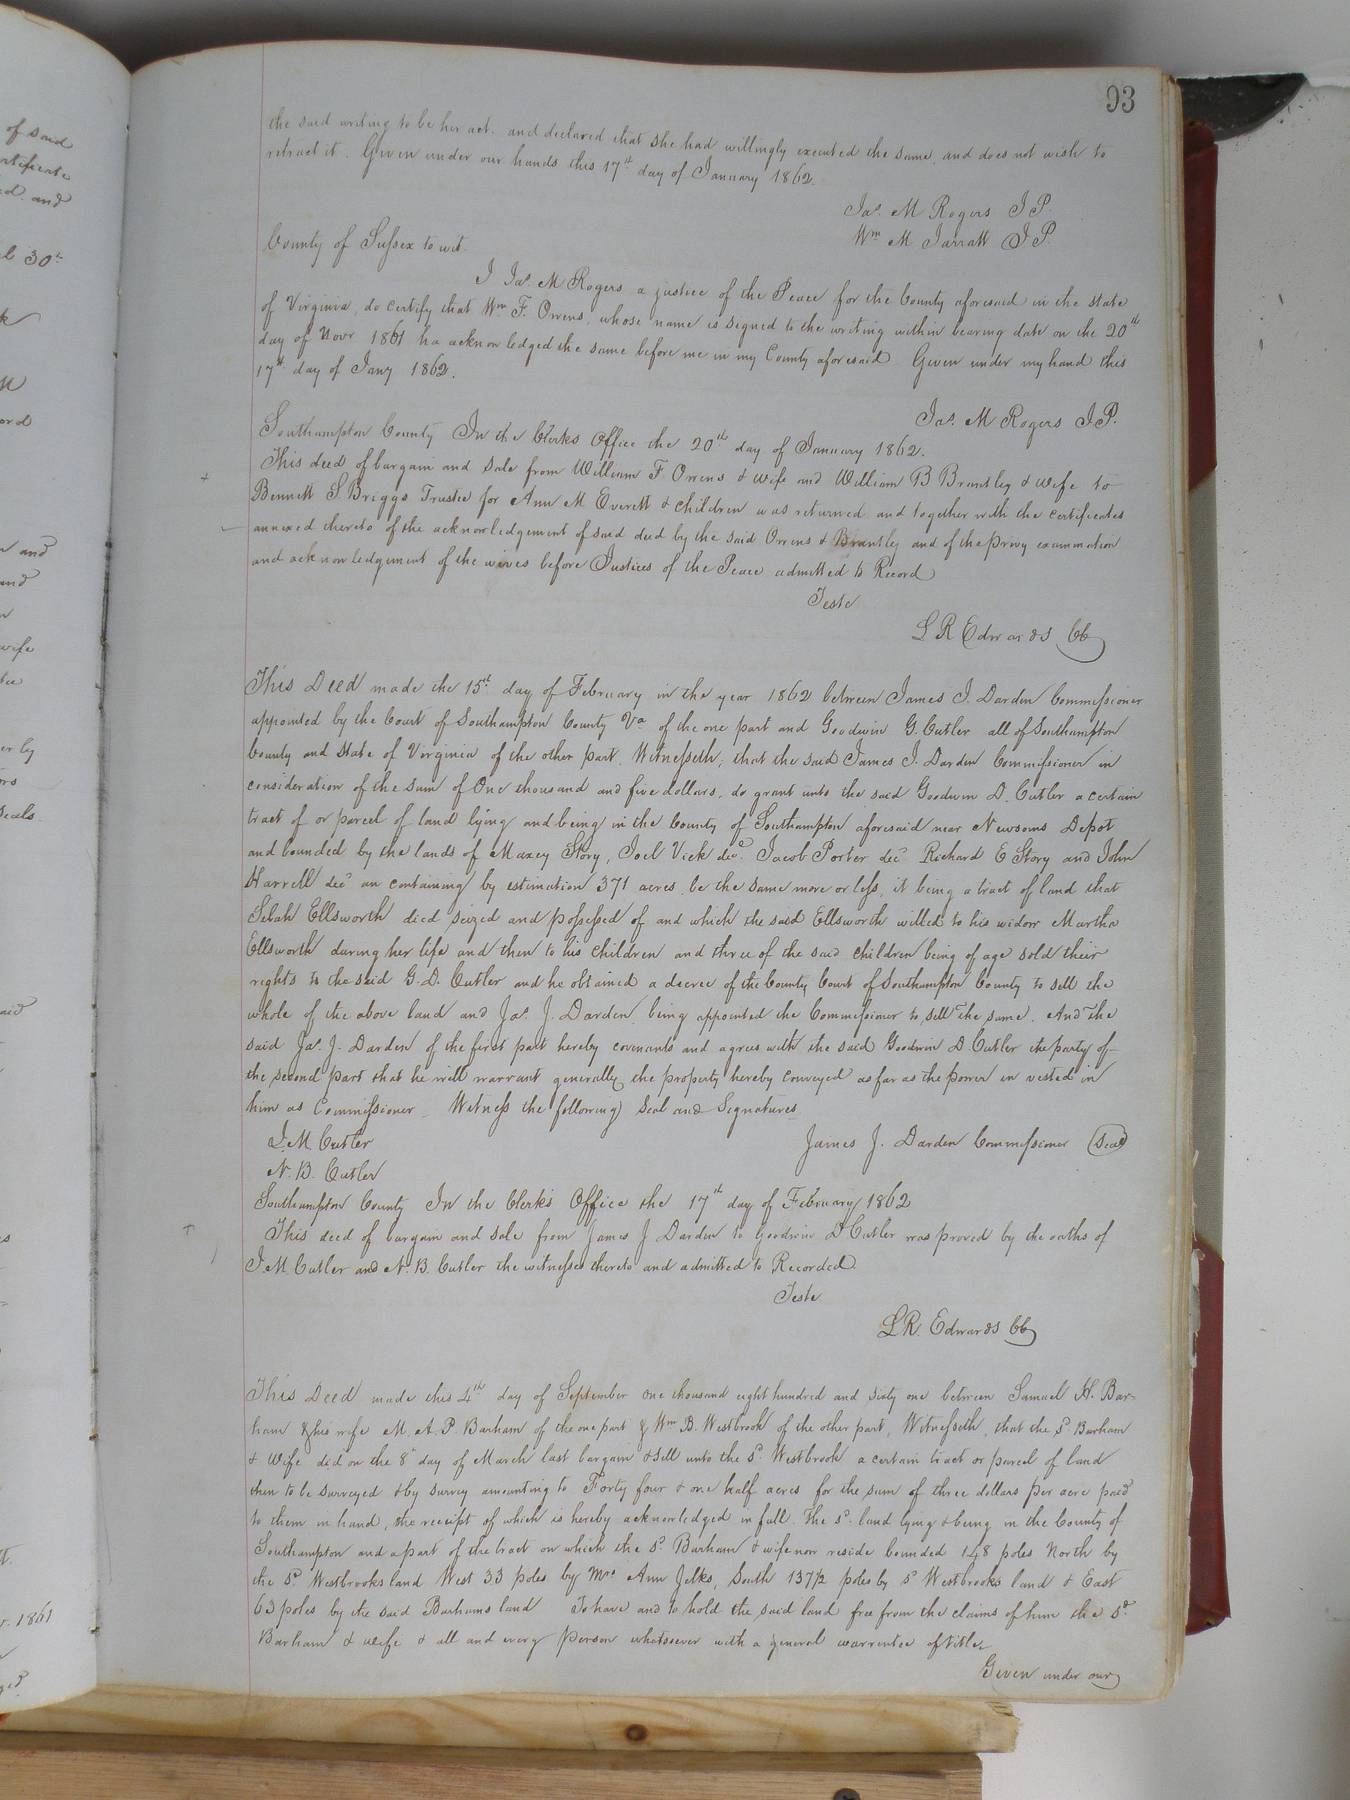 93
the said writing to be her act. and declared that she had willingly executed the same, and does not wish to
retract it. Given under our hands this 17th day of January 1862.
Jas. M Rogers J P.
Wm M Jarratt J P.
County of Sussex to wit.
I Jas. M Rogers a justice of the Peace for the County aforesaid in the state
of Virginia, do certify that Wm F. Owens, whose name is signed to the writing within bearing date on the 20th
day of Novr 1861 ha acknowledged the same before me in my County aforesaid Given under my hand this
17th day of Jany 1862.
Jas. M Rogers J P.
Southampton County In the Clerks Office the 20th day of January 1862.
This deed of bargain and sale from William F. Owens & wife and William B Brantley & wife to
Bennett S Briggs Trustee for Ann M Everett & children was returned and together with the certificates
annexed thereto of the acknowledgement of said deed by the said Owens & Brantley and of the privy examination
and acknowledgement of the wives before Justices of the Peace admitted to Record
Teste
L R Edwards CC
This Deed made the 15th day of February in the year 1862 between James J. Darden Commissioner
appointed by the Court of Southampton County Va of the one part and Goodwin G. Cutler all of Southampton
County and State of Virginia of the other part. Witnesseth; that the said James J. Darden Commissioner in
consideration of the sum of One thousand and five dollars, do grant unto the said Goodwin D. Cutler a certain
tract of or parcel of land lying and being in the County of Southampton aforesaid near Newsoms Depot
and bounded by the lands of Maxey Story, Joel Vick decd. Jacob Porter decd Richard E Story and John
Harrell decd an containing by estimation 371 acres be the same more or less, it being a tract of land that
Selah Ellsworth died seized and possessed of and which the said Ellsworth willed to his widow Martha
Ellsworth during her life and then to his children and three of the said children being of age sold their
rights to the said G. D. Cutler and he obtained a decree of the County Court of Southampton County to sell the
whole of the above land and Jas. J. Darden being appointed the Commissioner to sell the same. And the
said Jas. J. Darden of the first part hereby covenants and agrees with the said Goodwin D Cutler the party of
the second part that he will warrant generally the property hereby conveyed as far as the power in vested in
him as Commissioner. Witness the following Seal and Signatures
J. M. Cutler James J. Darden Commissioner Seal
N. B. Cutler
Southampton County In the Clerk's Office the 17th day of February 1862
This deed of bargain and sale from James J Darden to Goodwin D Cutler was proved by the oaths of
J. M. Cutler and N. B. Cutler the witnesses thereto and admitted to Recorded.
Teste
L R. Edwards CC
This Deed made this 4th day of September one thousand eight hundred and sixty one between Samuel H. Bar-
ham & his wife M. A. P. Barham of the one part & Wm B. Westbrook of the other part, Witnesseth, that the sd Barham
& wife did on the 8th day of March last bargain & sell unto the sd Westbrook a certain tract or parcel of land
then to be surveyed & by survey amounting to Forty four & one half acres for the sum of three dollars per acre paid
to them in hand, the receipt of which is hereby acknowledged in full. The sd land lying & being in the County of
Southampton and a part of the tract on which the sd Barham & wife now reside bounded 148 poles North by
the sd Westbrooks land West 33 poles by Mrs Ann Jelks, South 137 1/2 poles by sd Westbrooks land & East
63 poles by the said Barhams land To have and to hold the said land free from the claims of him the sd
Barham & wife & all and every person whatsoever with a general warrentee of title
Given under our